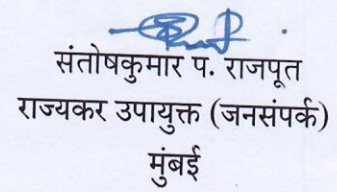 संतोषकुमार प. राजपूत
राज्यकर उपायुक्त (जनसंपर्क)
मुंबई